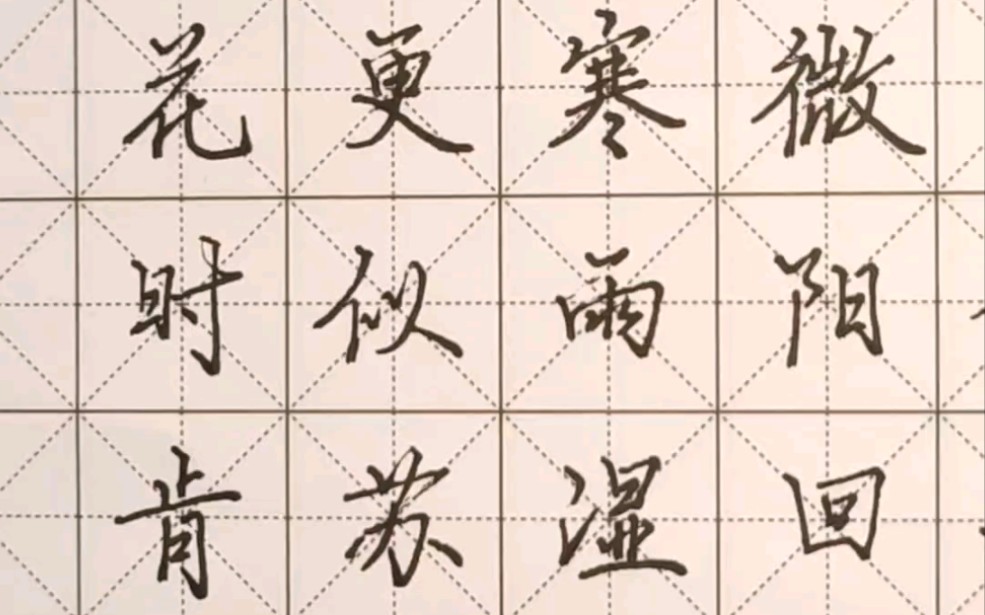 微阳回
寒雨湿
更似苏
花时肯